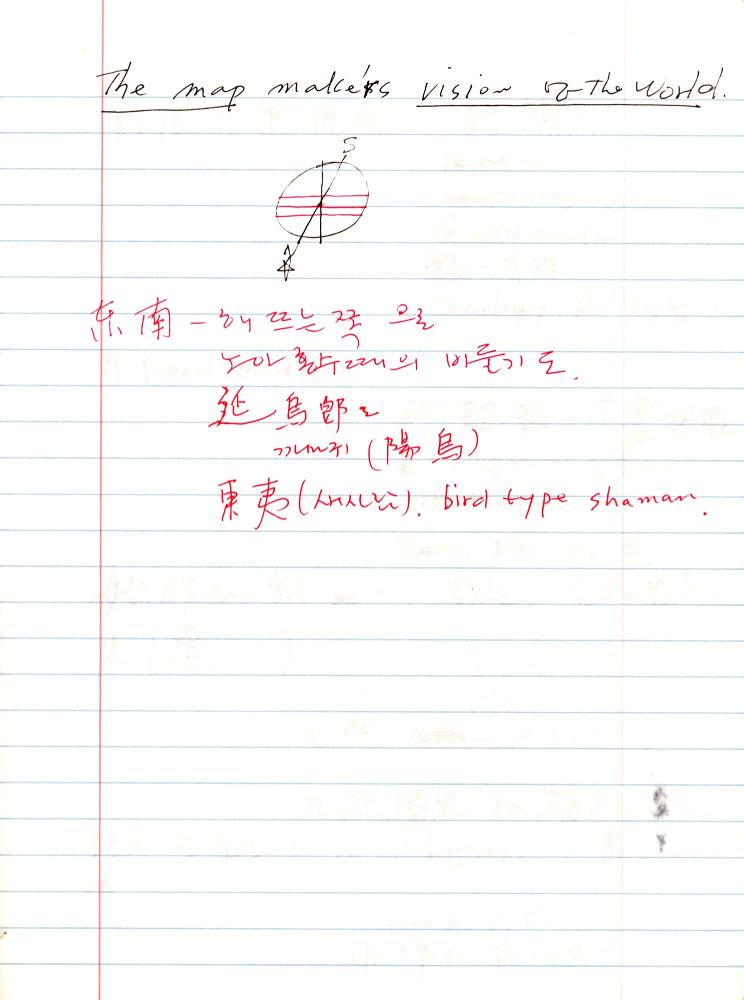 The map maker's vision of the World.
S
东南 - 해 뜨는 쪽 으로
노아 홍수 때의 비둘기 도.
延烏郎도
까마귀 (陽烏)
東夷 (새사람). bird type shaman.